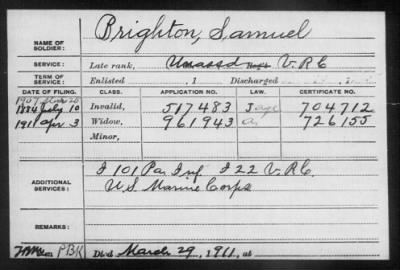 NAME OF SOLDIER: Brighton, Samuel
SERVICE: Late rank, Unassd Regt V.R.C
TERM OF SERVICE: Enlisted , 1 Discharged
DATE OF FILING. CLASS. APPLICATION NO. LAW. CERTIFICATE NO.
1907
1884 July 10 Invalid, 517483 704712
1911 Apr. 3 Widow, 961943 726155
Minor,
ADDITIONAL SERVICES: I 101 Pa Inf. I 22 V.R.C.
U.S. Marine Corps
REMARKS:
PBK Died March 29, 1911, at